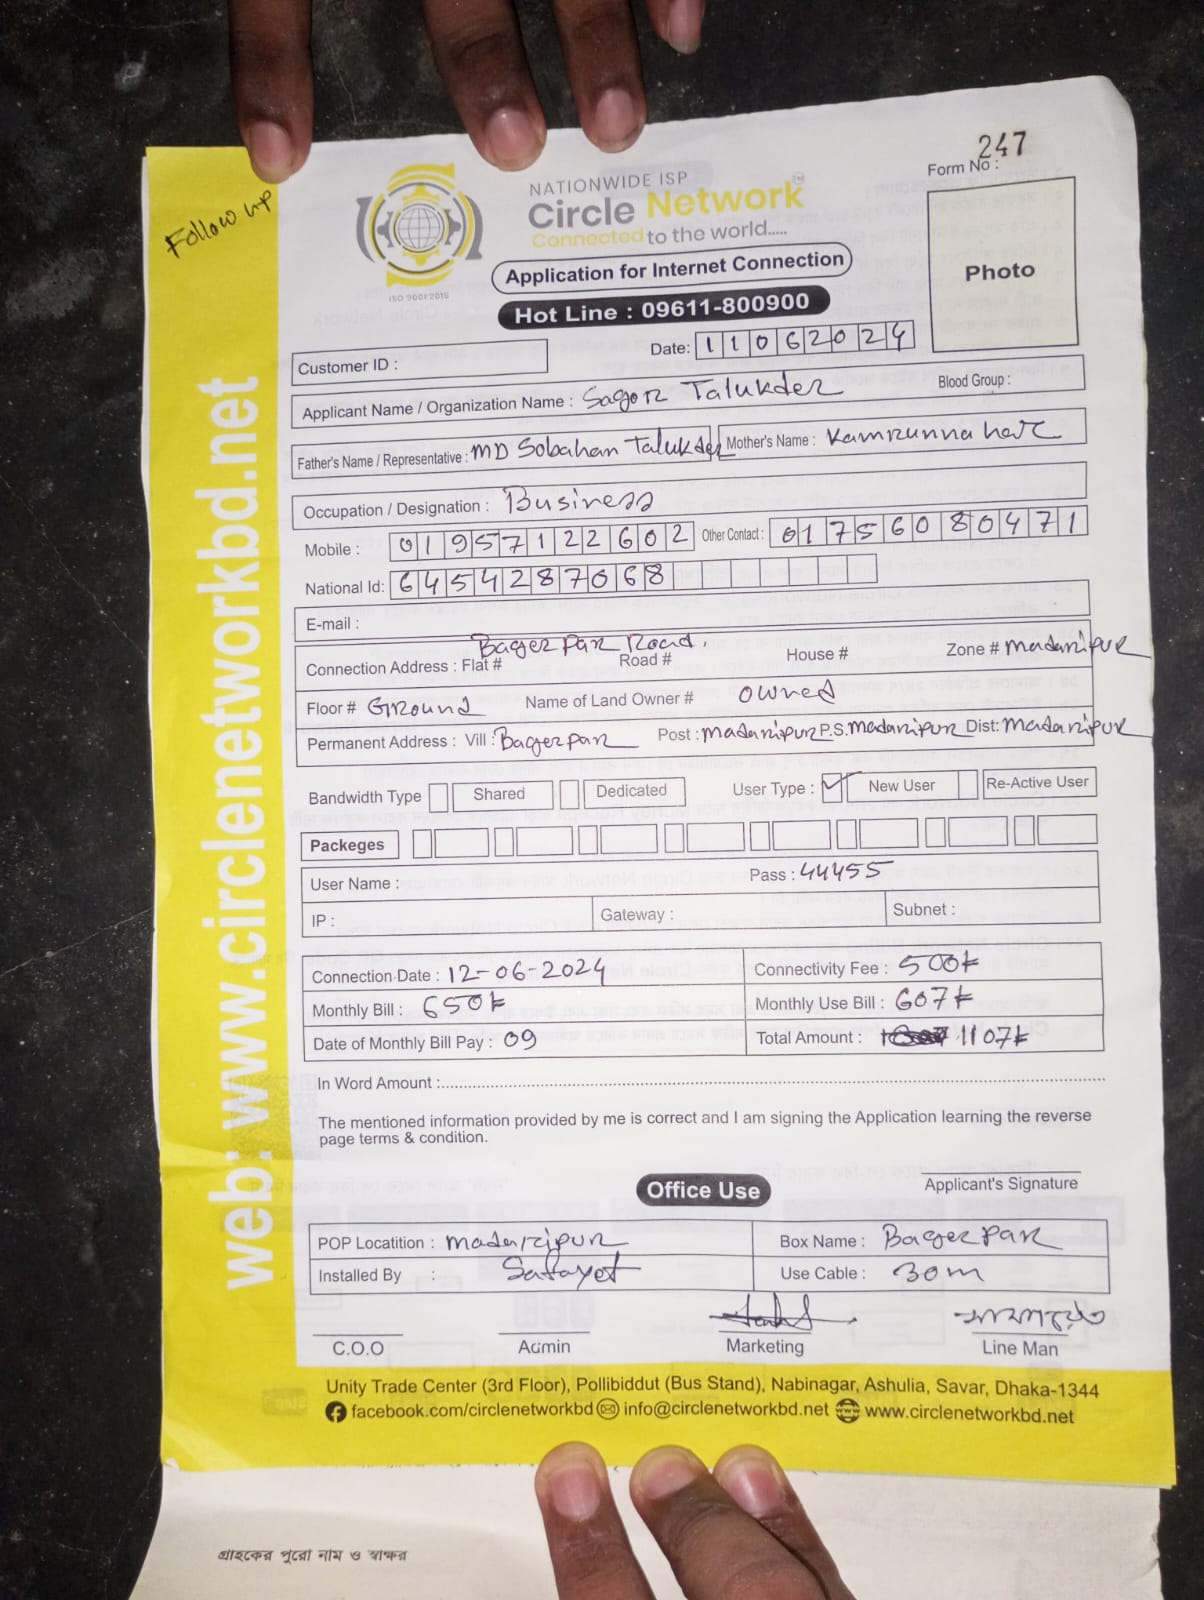 Follow up
247
Form No :
NATIONWIDE ISP
Circle Network
Connected to the world.....
ISO 9001:2015
Application for Internet Connection
Hot Line : 09611-800900
Photo
Date: 11062024
Customer ID :
Applicant Name / Organization Name : Sagor Talukder Blood Group :
Father's Name / Representative : MD Sobahan Talukder Mother's Name : Kamrunnahar
Occupation / Designation : Business
Mobile : 01957122602 Other Contact : 01756080471
National Id: 6454287068
E-mail :
Bager Par Road.
Connection Address : Flat # Road # House # Zone # Madaripur
Floor # Ground Name of Land Owner # Owned
Permanent Address : Vill : Bagerpar Post : Madaripur P.S. Madaripur Dist: Madaripur
Bandwidth Type Shared Dedicated User Type : ✓ New User Re-Active User
Packeges
User Name : Pass : 44455
IP : Gateway : Subnet :
Connection Date : 12-06-2024 Connectivity Fee : 500৳
Monthly Bill : 650৳ Monthly Use Bill : 607৳
Date of Monthly Bill Pay : 09 Total Amount : 1107৳
In Word Amount :
The mentioned information provided by me is correct and I am signing the Application learning the reverse
page terms & condition.
Applicant's Signature
Office Use
POP Locatition : Madaripur Box Name : Bagerpar
Installed By : Safayet Use Cable : 30m
C.O.O Admin Marketing Line Man
Unity Trade Center (3rd Floor), Pollibiddut (Bus Stand), Nabinagar, Ashulia, Savar, Dhaka-1344
facebook.com/circlenetworkbd info@circlenetworkbd.net www.circlenetworkbd.net
web: www.circlenetworkbd.net
গ্রাহকের পুরো নাম ও স্বাক্ষর